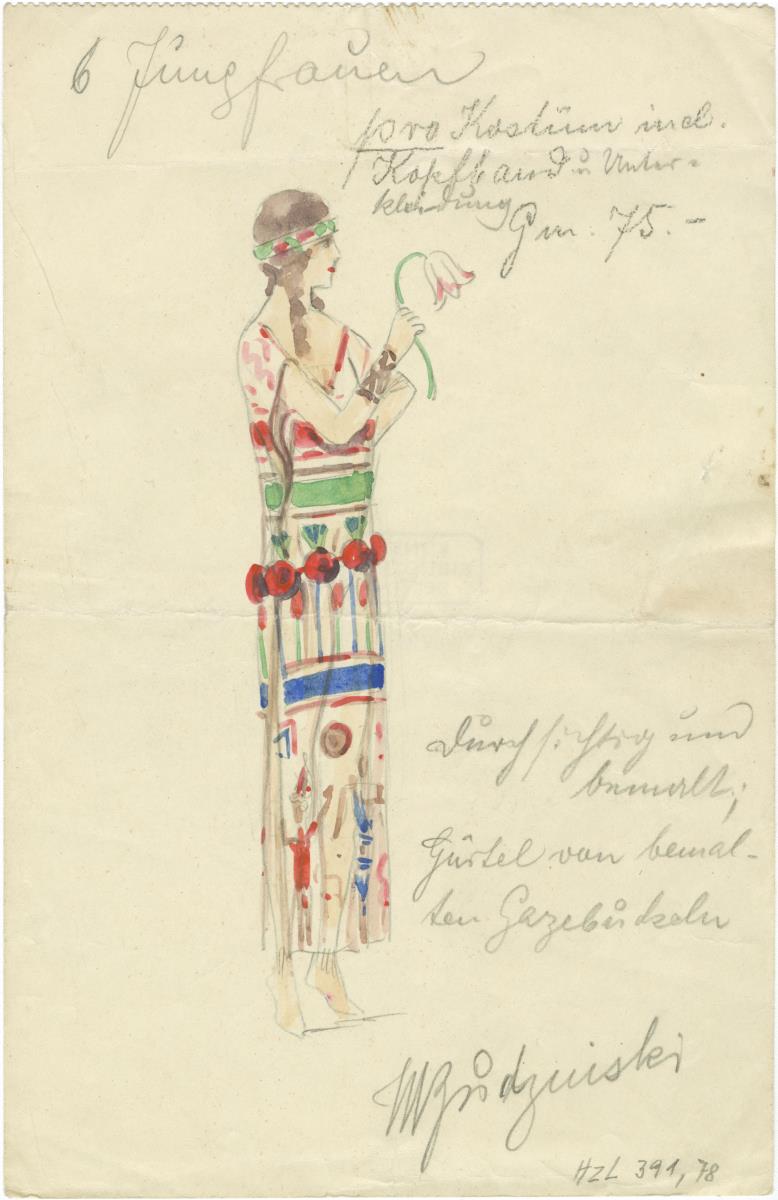 6 Jungfrauen
pro Kostüm incl.
Kopfband u Unter=
kleidung
Gm. 75.-
Durchsichtig und
bemalt;
Gürtel von bemal-
ten Gazebuckeln
HZL 391, 78